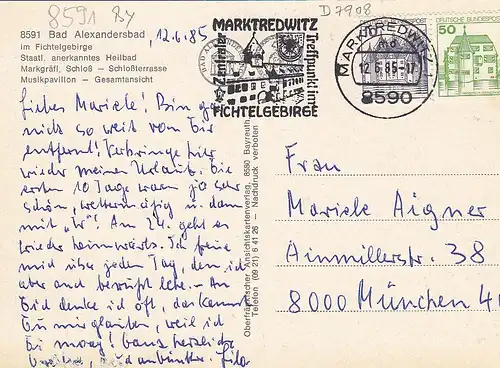 8591 By
D 7908
8591 Bad Alexandersbad
im Fichtelgebirge
Staatl. anerkanntes Heilbad
Markgräfl. Schloß — Schloßterrasse
Musikpavillon — Gesamtansicht
12.6.85
Liebes Mariele! Bin gar
nicht so weit vom Dir
entfernt! Verbringe hier
wieder meinen Urlaub. Die
ersten 10 Tage waren ja sehr
schön, wettermäßig u. dann
mit „ “! Am 24. geht es
wieder heimwärts. Ich freue
mich über jeden Tag, den ich
aber auch bewußt lebe – An
Dich denke ich oft, das kannst
Du mir glauben, weil ich
Di mag! Ganz herzliche
Oberfränkischer Ansichtskartenverlag, 8580 Bayreuth
Telefon (09 21) 6 41 26 — Nachdruck verboten
MARKTREDWITZ
Zentraler
Treffpunkt im
FICHTELGEBIRGE
MARKTREDWITZ
12.6.85-17
8590
DEUTSCHE BUNDESPOST
50
Frau
Mariele Aigner
Ainmillerstr. 38
8000 München 4